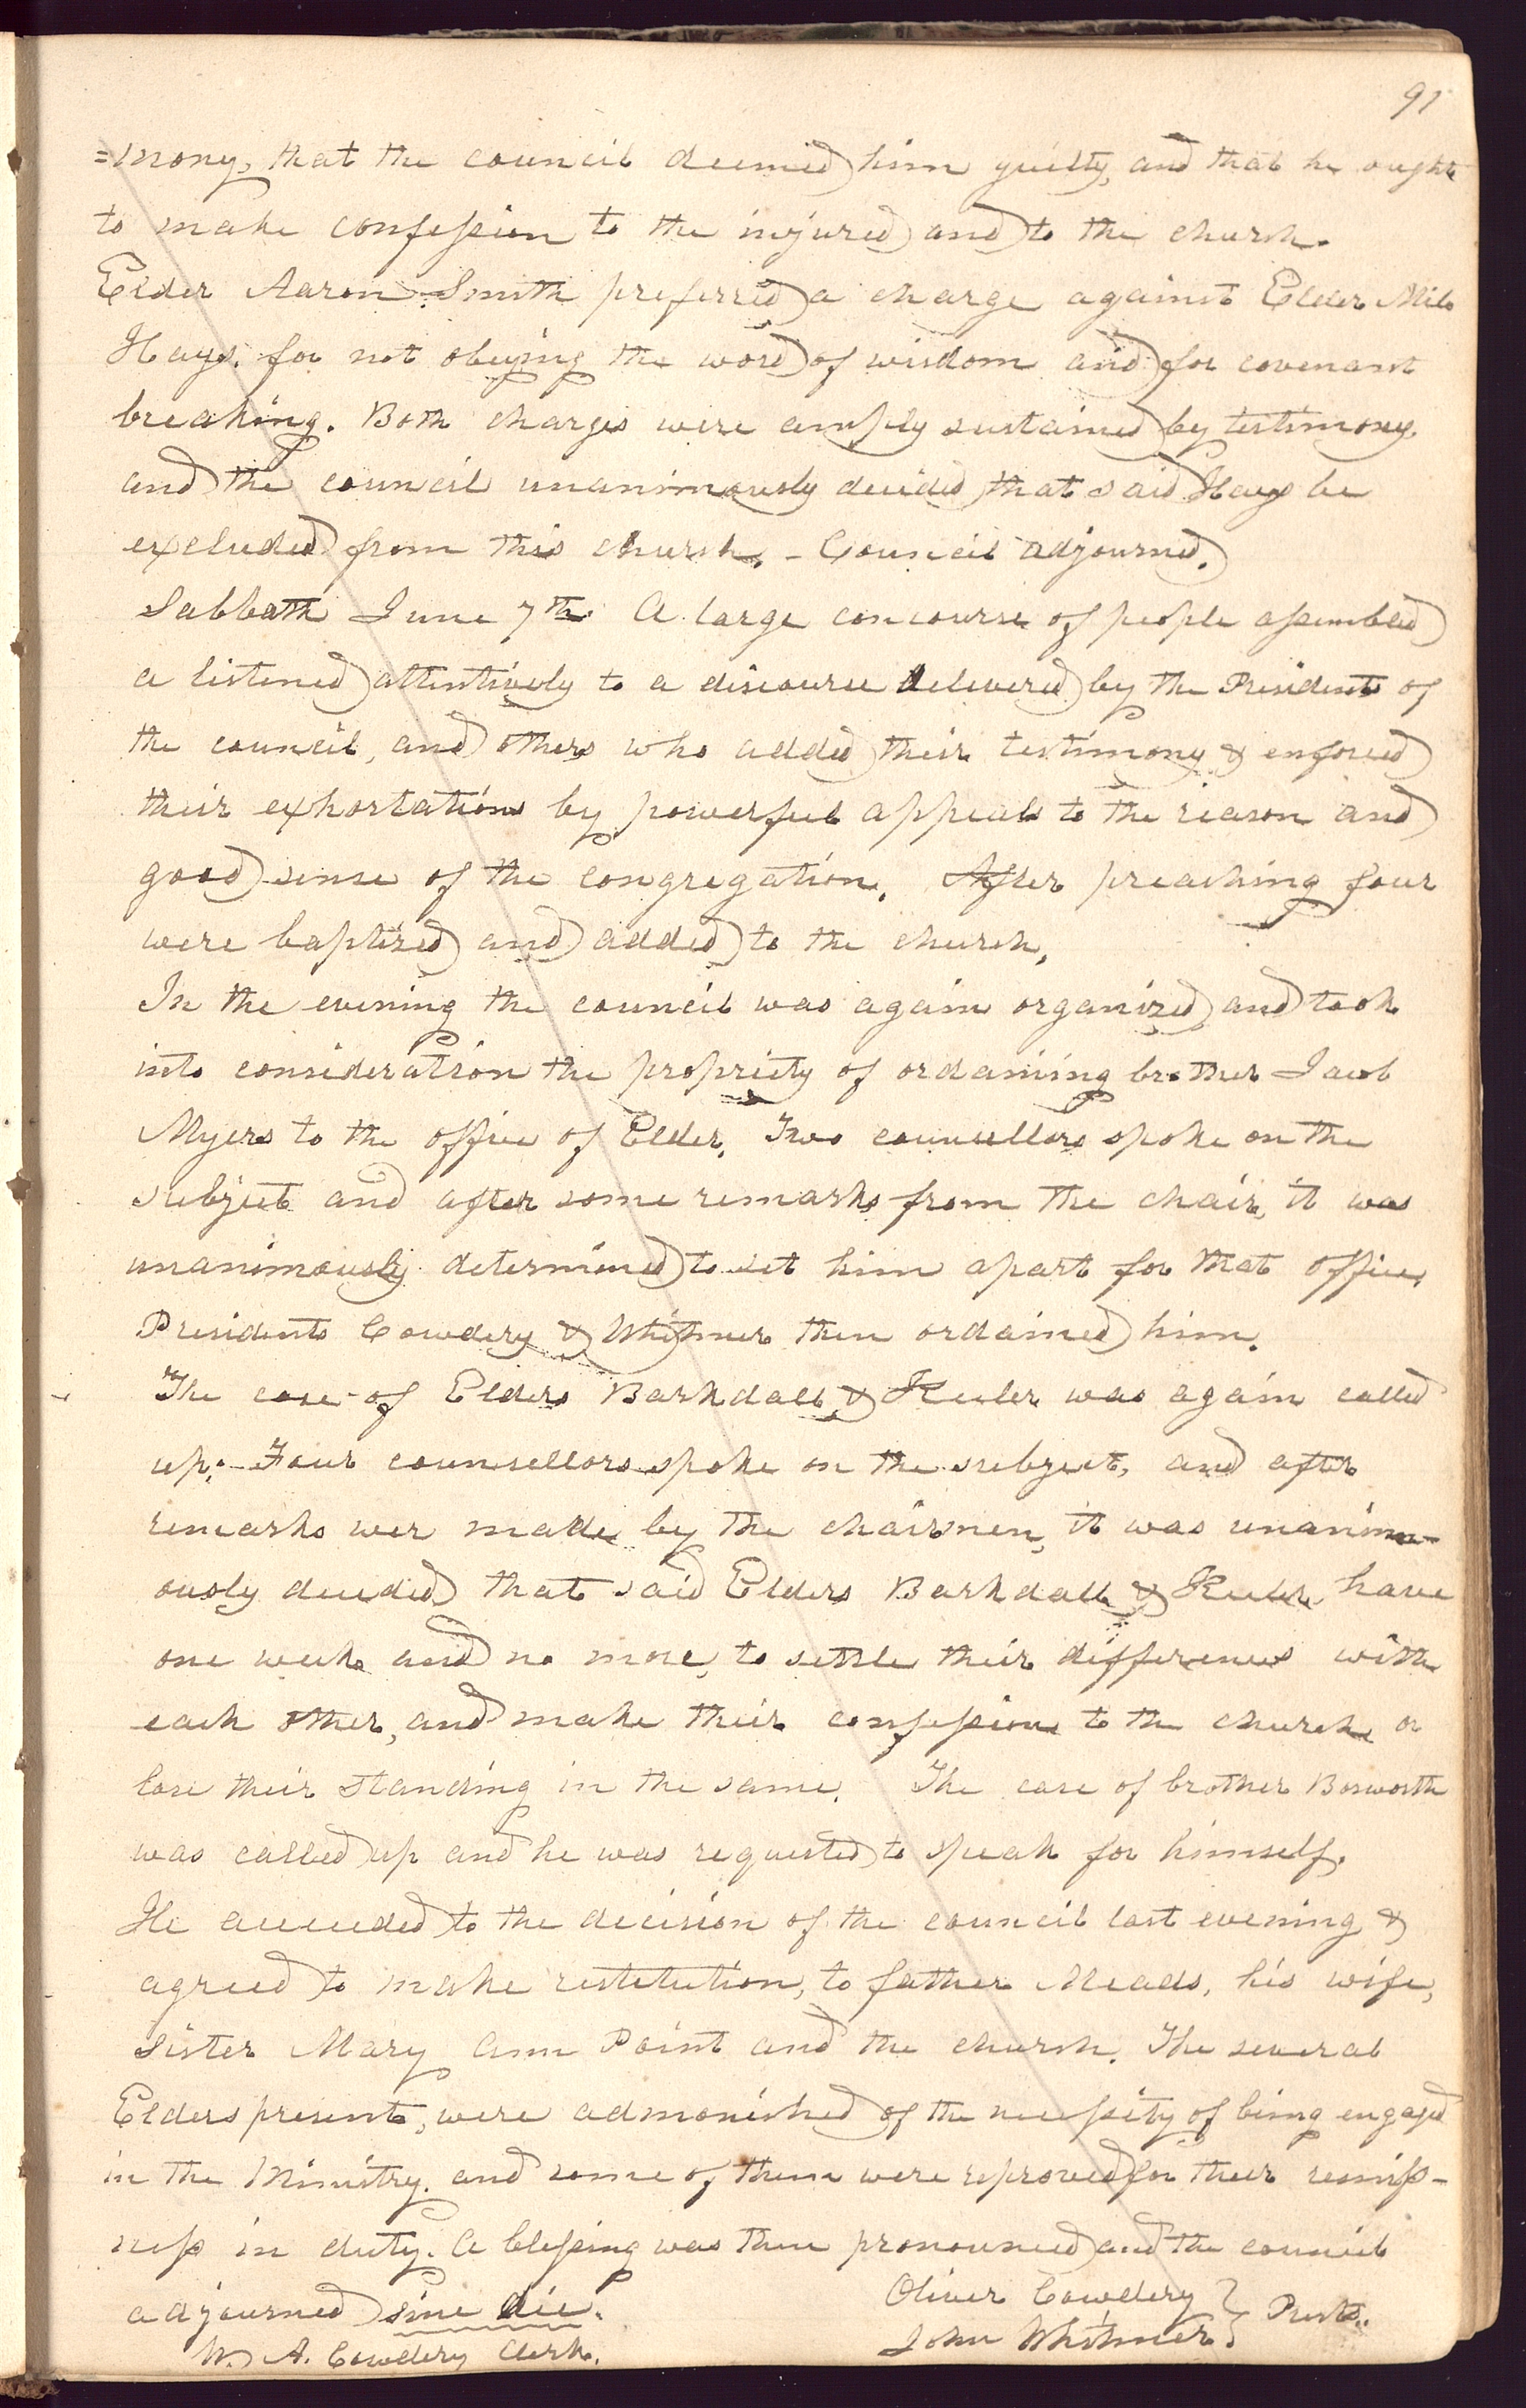 91
=mony, that the council deemed him guilty, and that he ought
to make confession to the injured and to the church.
Elder Aaron Smith preferred a charge against Elder Milo
Hays, for not obeying the word of wisdom and for covenant
breaking. Both charges were amply sustained by testimony,
and the council unanimously decided, that said Hays be
excluded from this church. - Council adjourned.
Sabbath June 7th. A large concourse of people assembled
a listened attentively to a discourse delivered by the Presidents of
the council, and others who added their testimony & enforced
their exhortations by powerful appeals to the reason and
good sense of the congregation. After preaching four
were baptized and added to the church.
In the evening the council was again organized and took
into consideration the propriety of ordaining brother Jacob
Myers to the office of Elder. Two counsellors spoke on the
subject and after some remarks from the chair, it was
unanimously determined to set him apart for that office.
Presidents Cowdery & Whitmer then ordained him.
The case of Elders Barkdall & Keeler was again called
up:- Four counsellors spoke on the subject, and after
remarks wer made by the chairmen, it was unanim-
ously decided that said Elders Barkdall & Keeler have
one week and no more, to settle their differences with
each other, and make their confession to the church or
lose their standing in the same. The case of brother Bosworth
was called up and he was requested to speak for himself.
He acceeded to the decision of the council last evening &
agreed to make restitution, to father Meads, his wife,
sister Mary Ann Point and the church. The several
Elders present, were admonished of the necessity of being engaged
in the Ministry. and some of them were reproved for their remiss-
ness in duty. A blessing was then pronounced and the council
adjourned sine die.
Oliver Cowdery } Prests.
John Whitmer }
W. A. Cowdery Clerk.